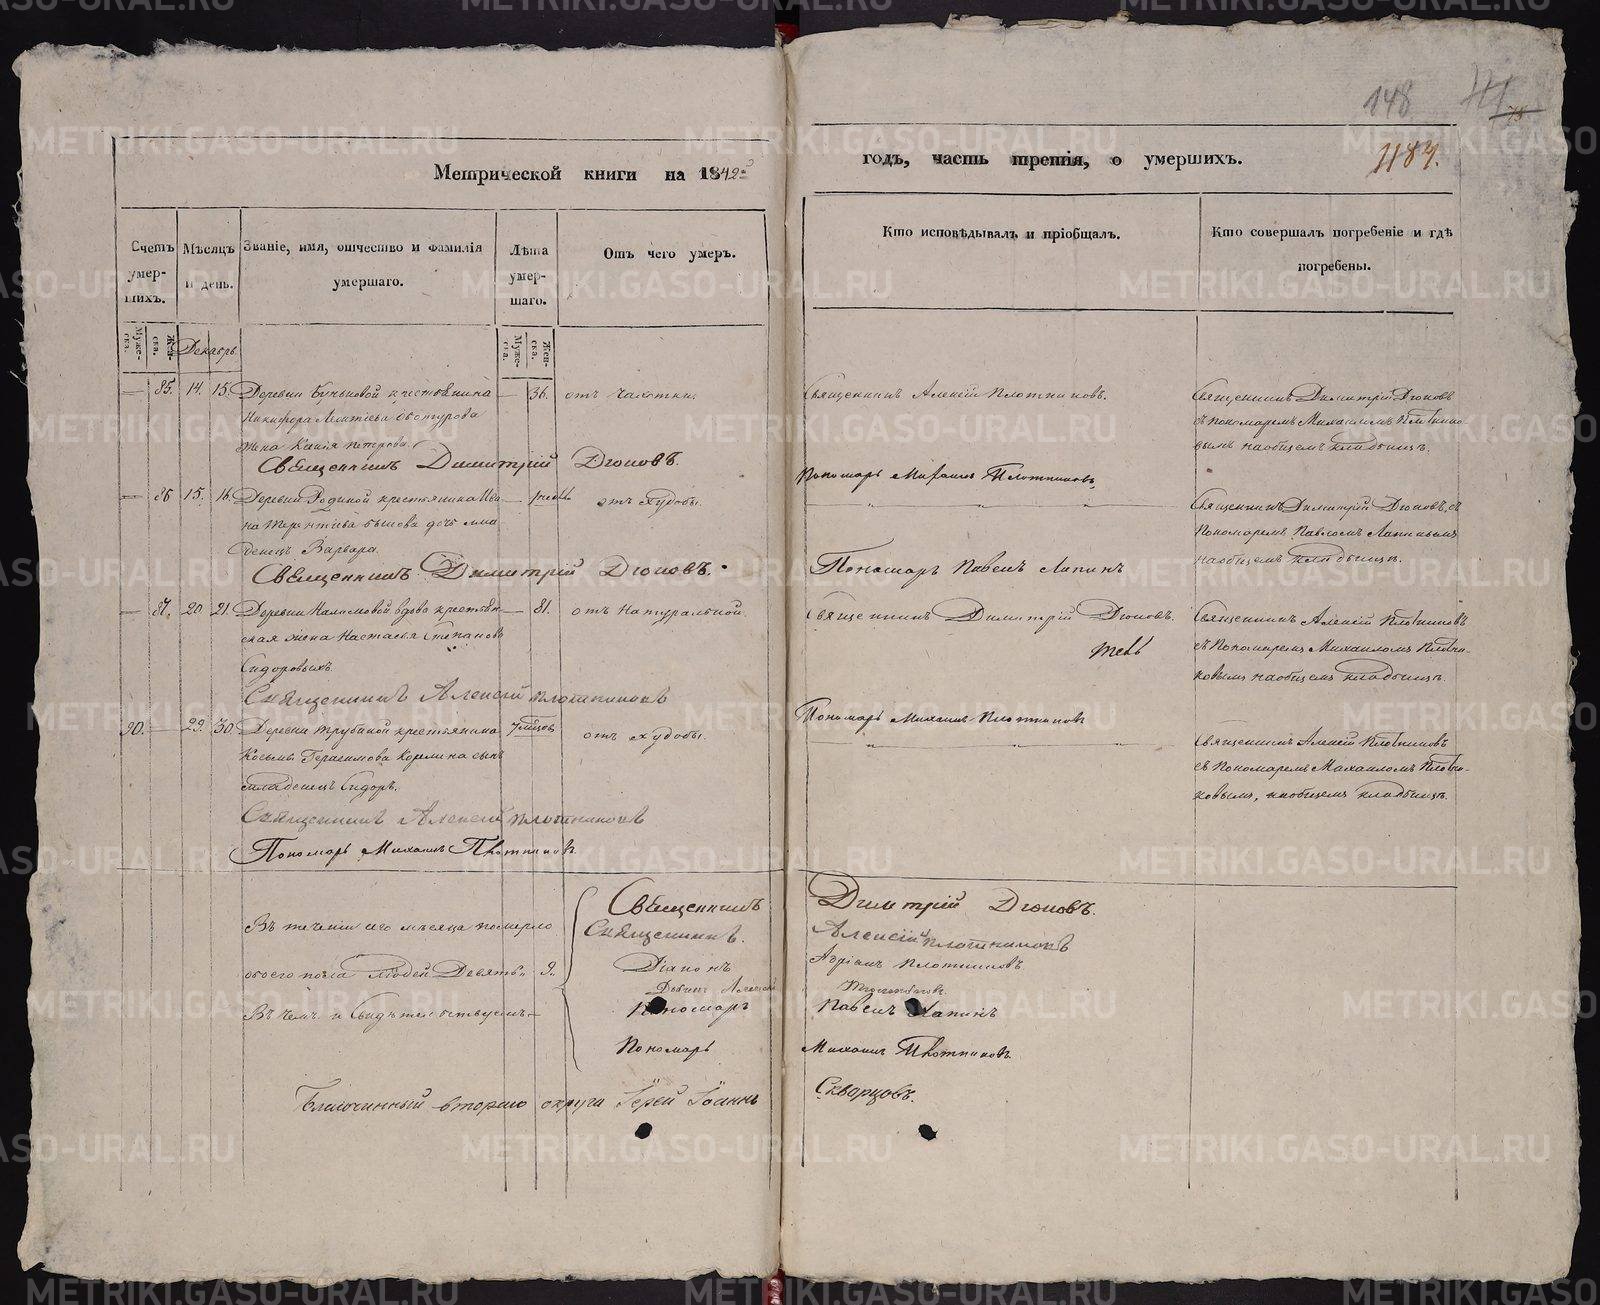 148
1184.
Метрической книги на 1842й
годъ, часть третія, о умершихъ.
Счетъ умершихъ.
Мѣсяцъ и день.
Званіе, имя, отчество и фамилія умершаго.
Лѣта умершаго.
Отъ чего умеръ.
Кто исповѣдывалъ и пріобщалъ.
Кто совершалъ погребеніе и гдѣ погребены.
Мужеска.
Женска.
Декабрь
Мужеска.
Женска.
— 85. 14. 15. Деревни крестьянина — 36. отъ чахотки.
Никифора Леонтьева
жена Петрова.
Священникъ Алексій Плотниковъ.
Священникъ Димитрій Дюковъ
съ пономаремъ Михаиломъ Плотнико-
вымъ на общемъ кладбищѣ.
Священникъ Димитрій Дюковъ.
Пономарь Михаилъ Плотниковъ.
— 86 15. 16. Деревни Родиной крестьянина Ива- — отъ худобы.
на Терентьева дочь мла-
денецъ Варвара.
Священникъ Димитрій Дюковъ, съ
Пономаремъ Павломъ Лапинымъ
на общемъ кладбищѣ.
Священникъ Димитрій Дюковъ.
Пономарь Павелъ Лапинъ
— 87. 20 21. Деревни Налимовой вдова крестьян- — 81. отъ натуральной.
ская жена Настасья Степанова
Сидоровыхъ.
Священникъ Димитрій Дюковъ.
Священникъ Алексій Плотниковъ
съ Пономаремъ Михаиломъ Плотни-
ковымъ на общемъ кладбищѣ.
Священникъ Алексій Плотниковъ
Пономарь Михаилъ Плотниковъ
90. — 29. 30. Деревни Трубиной крестьянина 7 мѣсяц. отъ худобы.
Косьмы Герасимова сынъ
младенецъ Сидоръ.
Священникъ Алексій Плотниковъ
съ Пономаремъ Михаиломъ Плотни-
ковымъ, на общемъ кладбищѣ.
Священникъ Алексій Плотниковъ
Пономарь Михаилъ Плотниковъ.
Въ теченіи сего мѣсяца померло
обоего пола людей Девять 9.
Въ чемъ и свидѣтельствуемъ —
Священникъ Димитрій Дюковъ.
Священникъ Алексій Плотниковъ
Діаконъ Плотниковъ
Пономарь Павелъ Лапинъ
Пономарь Михаилъ Плотниковъ
Благочинный втораго округа Іерей Іоаннъ Скварцовъ.
METRIKI.GASO-URAL.RU